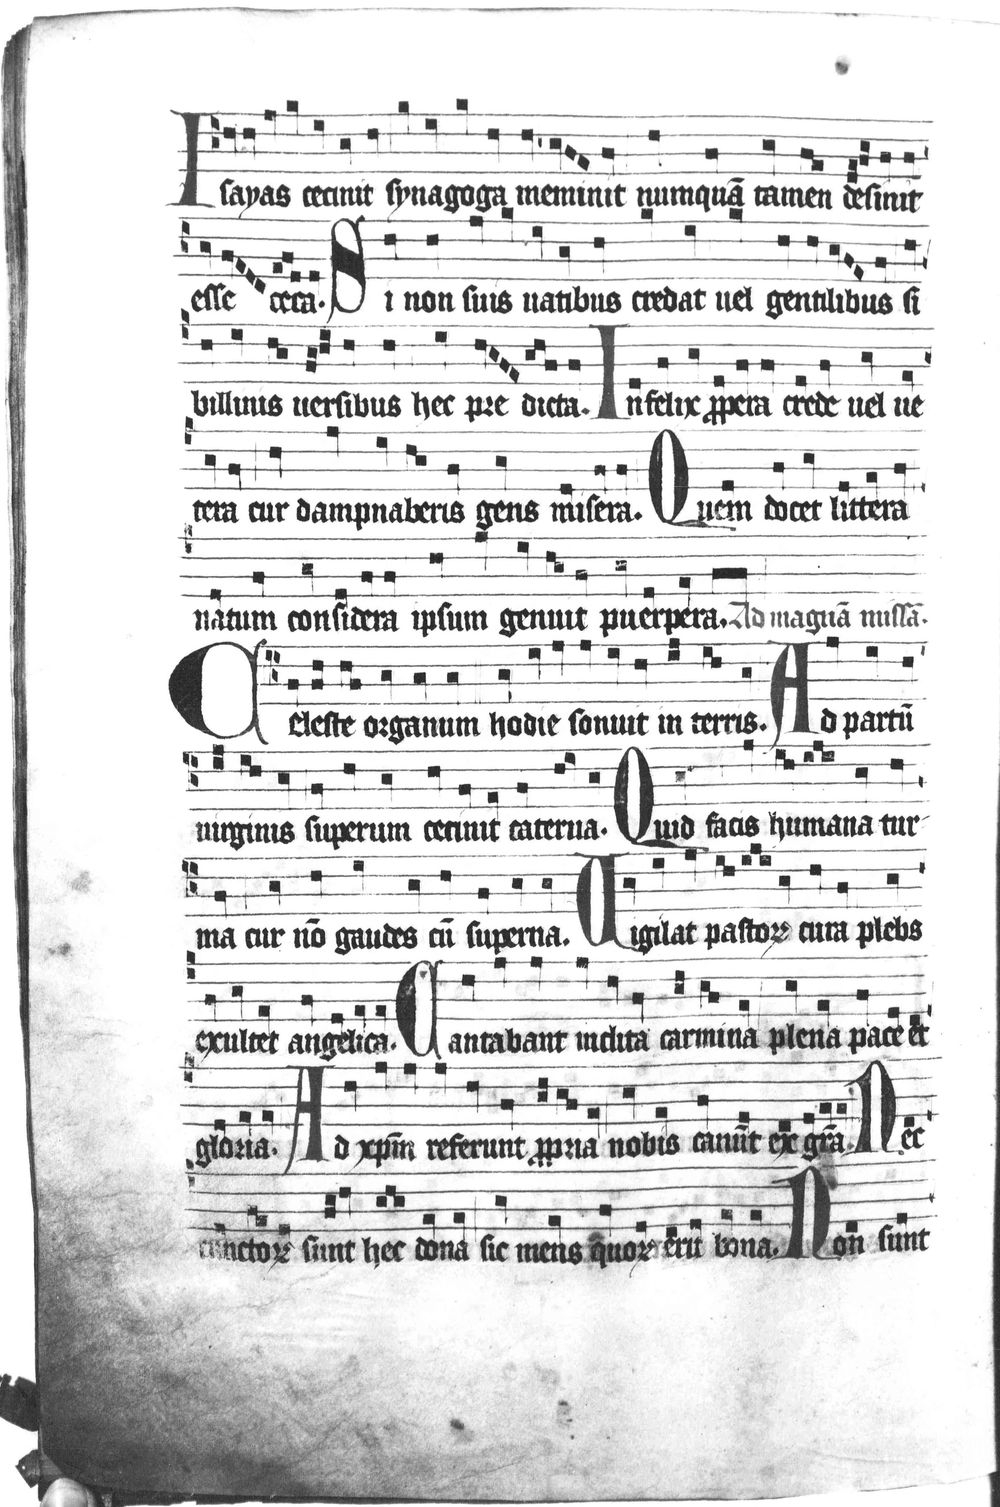 Isayas cecinit synagoga meminit numquā tamen desinit
esse ceca. Si non suis uatibus credat uel gentilibus si
billinis uersibus hec pre dicta. Infelix ꝓpera crede uel ue
tera cur dampnaberis gens misera. Quem docet littera
natum considera ipsum genuit puerpera. Ad magnā missā.
Celeste organum hodie sonuit in terris. Ad partū
uirginis superum cecinit caterua. Quid facis humana tur
ma cur nō gaudes cū superna. Uigilat pastoꝝ cura plebs
exultet angelica. Cantabant inclita carmina plena pace et
gloria. Ad xp̄m referunt ꝓpria nobis canūt ex gr̄a. Nec
cunctoꝝ sunt hec dona sic mens quoꝝ erit bona. Non sunt